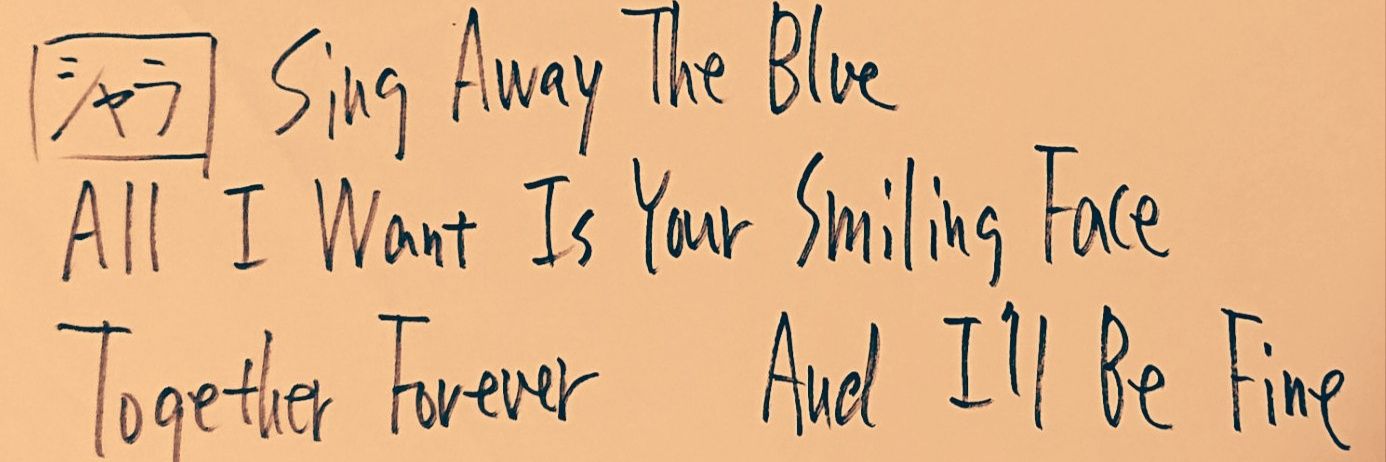 ジャラ Sing Away The Blue
All I Want Is Your Smiling Face
Together Forever And I'll Be Fine